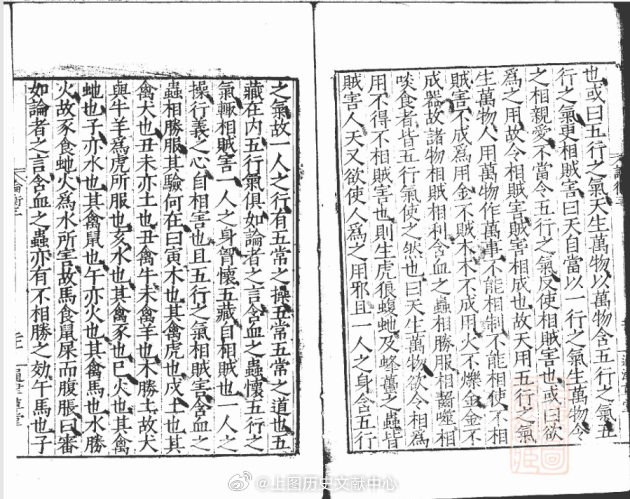 也或曰五行之氣天生萬物以萬物含五行之氣五
行之氣更相賊害曰天自當以一行之氣生萬物令
之相親愛不當令五行之氣反使相賊害也或曰欲
為之用故令相賊害賊害相成也故天用五行之氣
生萬物人用萬物作萬事不能相制不能相使不相
賊害不成為用金不賊木木不成用火不爍金金不
成器故諸物相賊相利含血之蟲相勝服相齧噬相
啖食者皆五行氣使之然也曰天生萬物欲令相為
用不得不相賊害也則生虎狼蝮虵及蜂蠆之蟲皆
賊害人天又欲使人為之用邪且一人之身含五行
之氣故一人之行有五常之操五常五常之道也五
藏在内五行氣俱如論者之言含血之蟲懷五行之
氣輒相賊害一人之身胷懷五藏自相賊也一人之
操行義之心自相害也且五行之氣相賊害含血之
蟲相勝服其驗何在曰寅木也其禽虎也戌土也其
禽犬也丑未亦土也丑禽牛未禽羊也木勝土故犬
與牛羊為虎所服也亥水也其禽豕也巳火也其禽
虵也子亦水也其禽鼠也午亦火也其禽馬也水勝
火故豕食虵火為水所害故馬食鼠屎而腹脹曰審
如論者之言含血之蟲亦有不相勝之効午馬也子
@上图历史文献中心